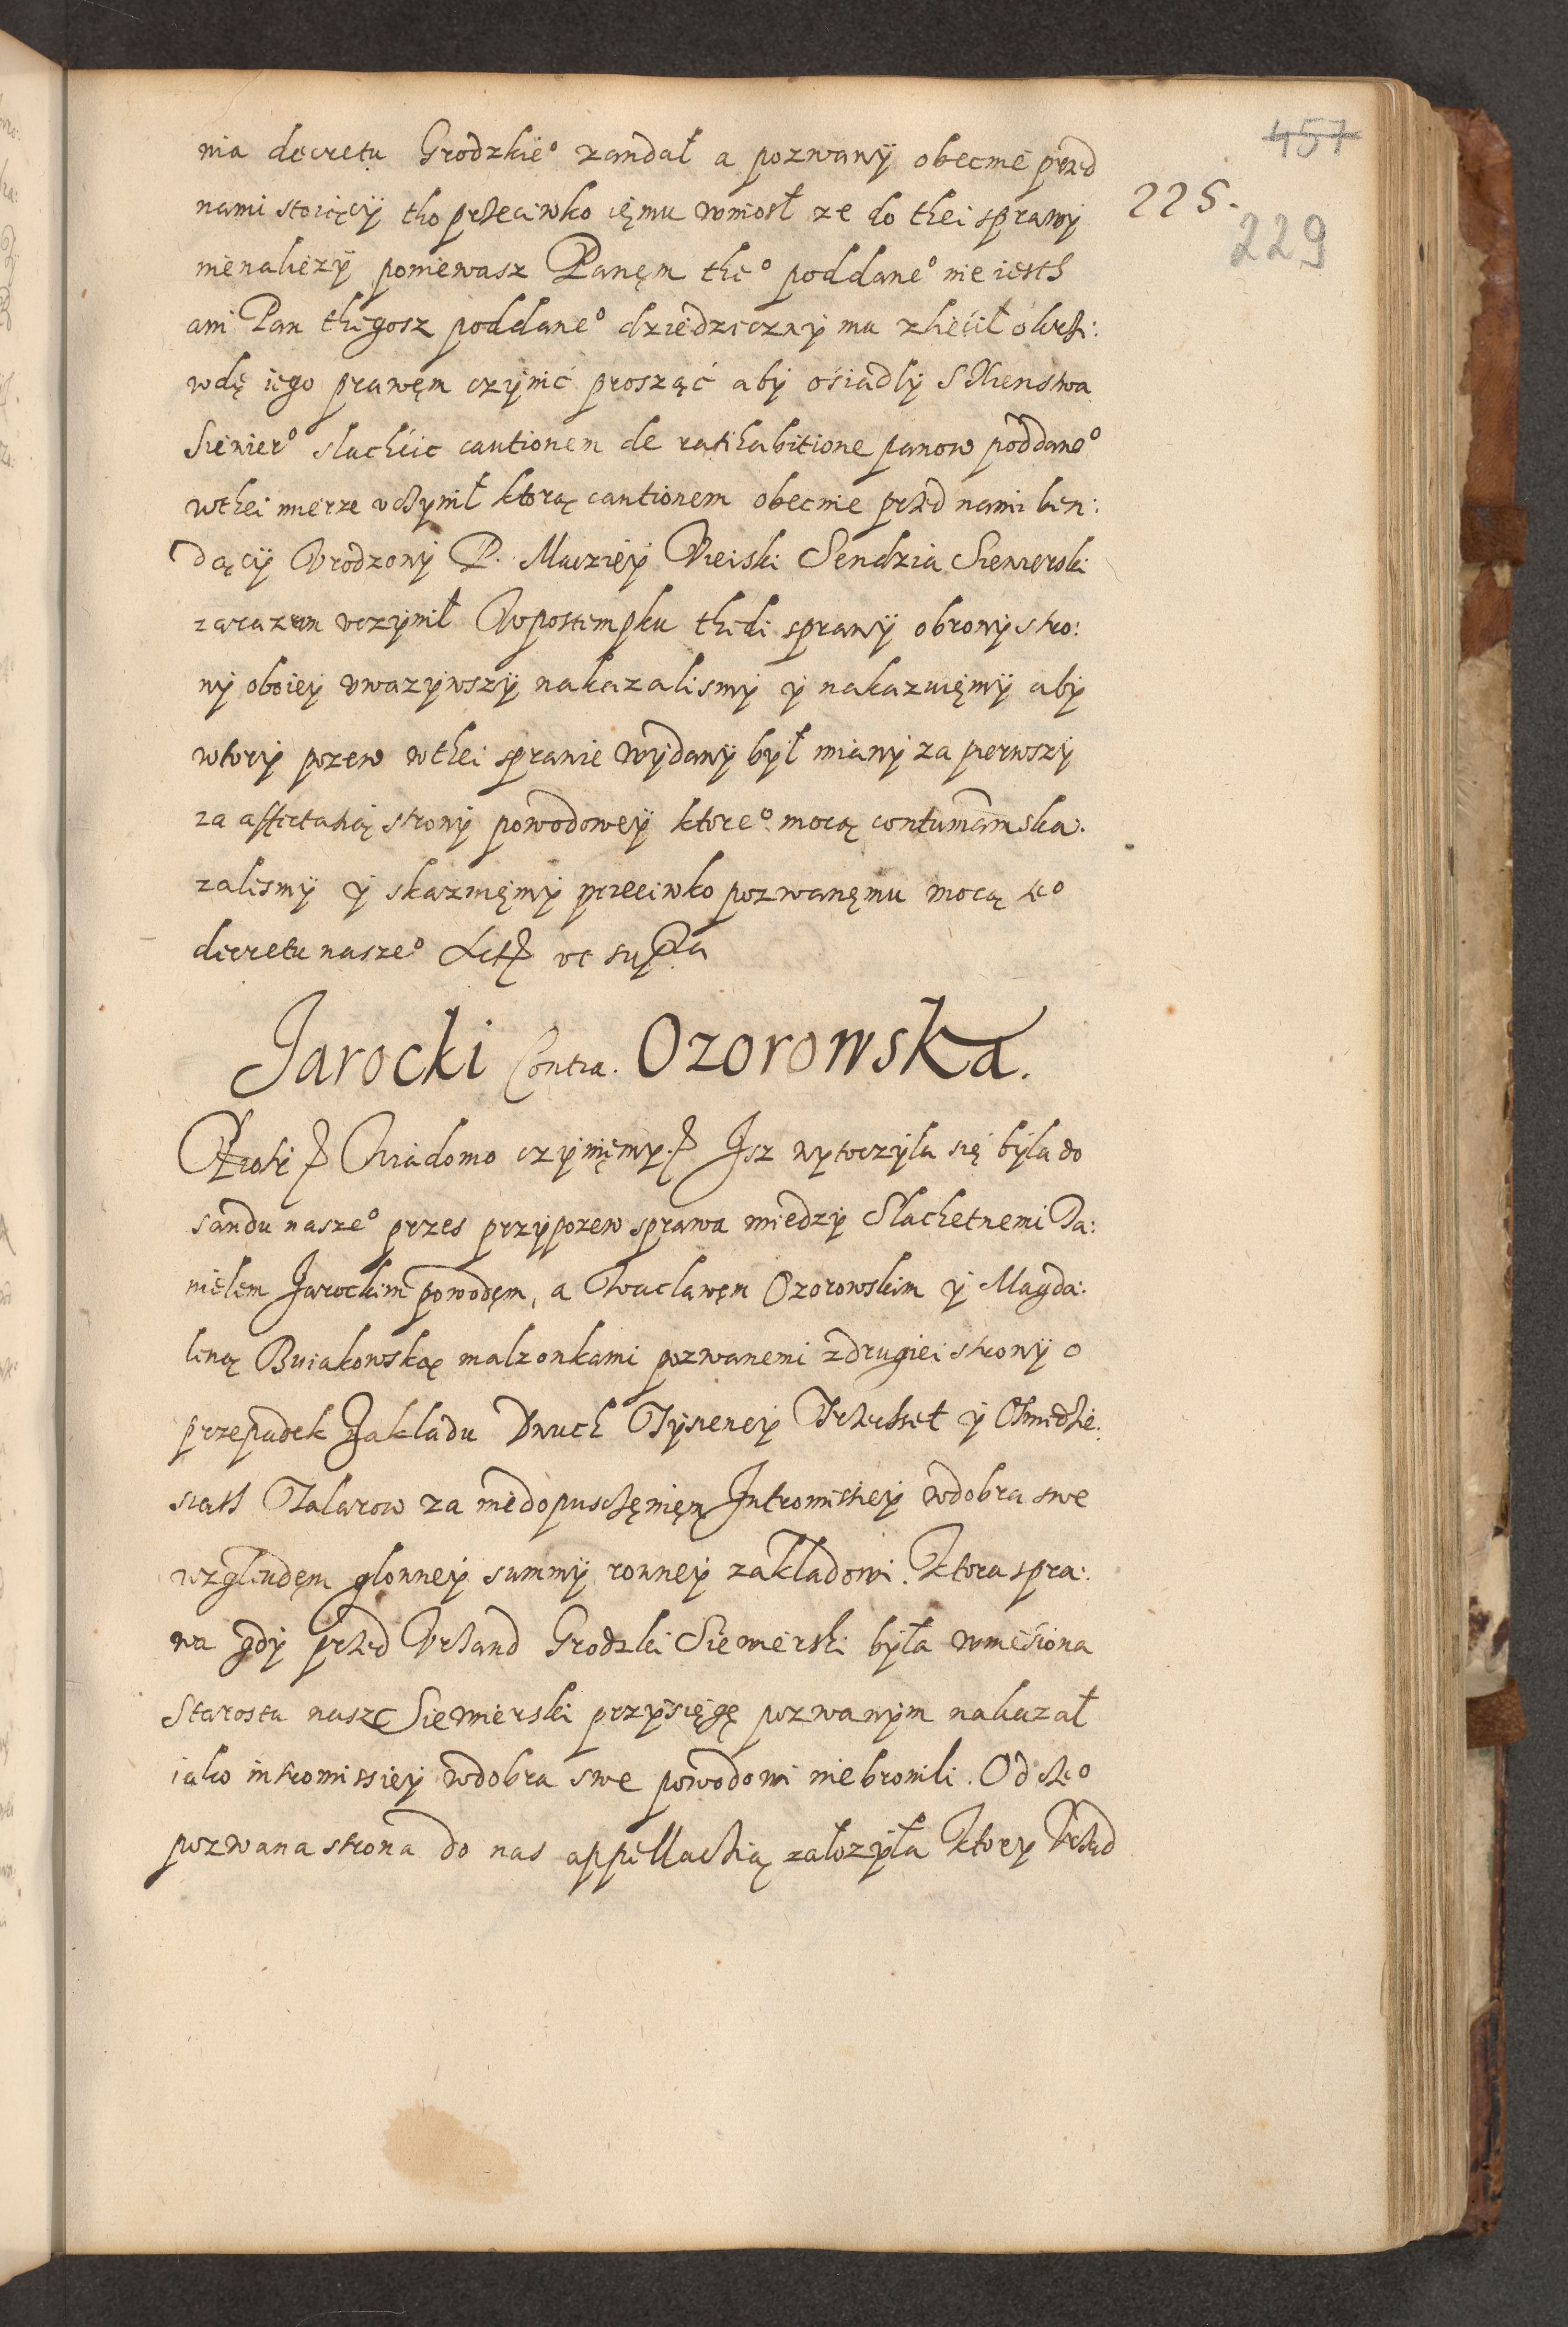 457
225.
229
nia decretu Grodzkie° zandał a pozwany obecnie przed
nami stoięcÿ tho przeciwko ięmu wniosł ze do thei sprawÿ
nienalezÿ poniewasz Panęm the° poddane° nie iesth
ani Pan thegosz poddane° dziedziczny mu zliecił o krzi:
wdę iego prawęm czÿnić prosząć aby ośiadly Xienstwa
Siewier° slachcic cautionem de ratihabitione panow poddane°
wthei mierze vczynił ktorą cautionem obecnie przed nami ben:
dącÿ Vrodzony P. Maciey Sendzia Siewierski
zarazem vczynił W postempku thedi sprawÿ obrony stro:
ny oboiey vwazywszÿ nakazalismy ÿ nakazuięmÿ aby
wtory pozew wthei sprawie wydanÿ był miany za pierwszÿ
za affectatią strony powodoweÿ ktore° mocą contumaciam ska:
zalismÿ ÿ skazuięmÿ przeciwko pozwanęmu mocą te°
decretu nasze° Act. vt supra
Jarocki Contra. Ozorowska.
Piotr Wiadomo czynięmy. Isz wytoczyla się była do
sandu nasze° przes przypozew sprawa miedzy Slachetnemi Da:
nielem Jarockim powodęm, a Waclawęm Ozorowskim ÿ Magda:
leną Buiakowską malzonkami pozwanemi zdrugiei stronÿ o
przepadek Zakladu Dwuch Tysiency Trzechset ÿ Osmdzie:
siath Talarow za niedopusczęnięm Intromissiey wdobra swe
wzglendęm glowney summÿ rowney zakladowi. Ktora spra:
wa gdy przed Vrzand Grodzki Siewierski była wniesiona
Starosta nasz Siewierski przysięgę pozwanym nakazał
iako intromissiey wdobra swe powodowi niebronili. Od cze°
pozwana strona do nas appellachią załozyła ktorey Vrzad